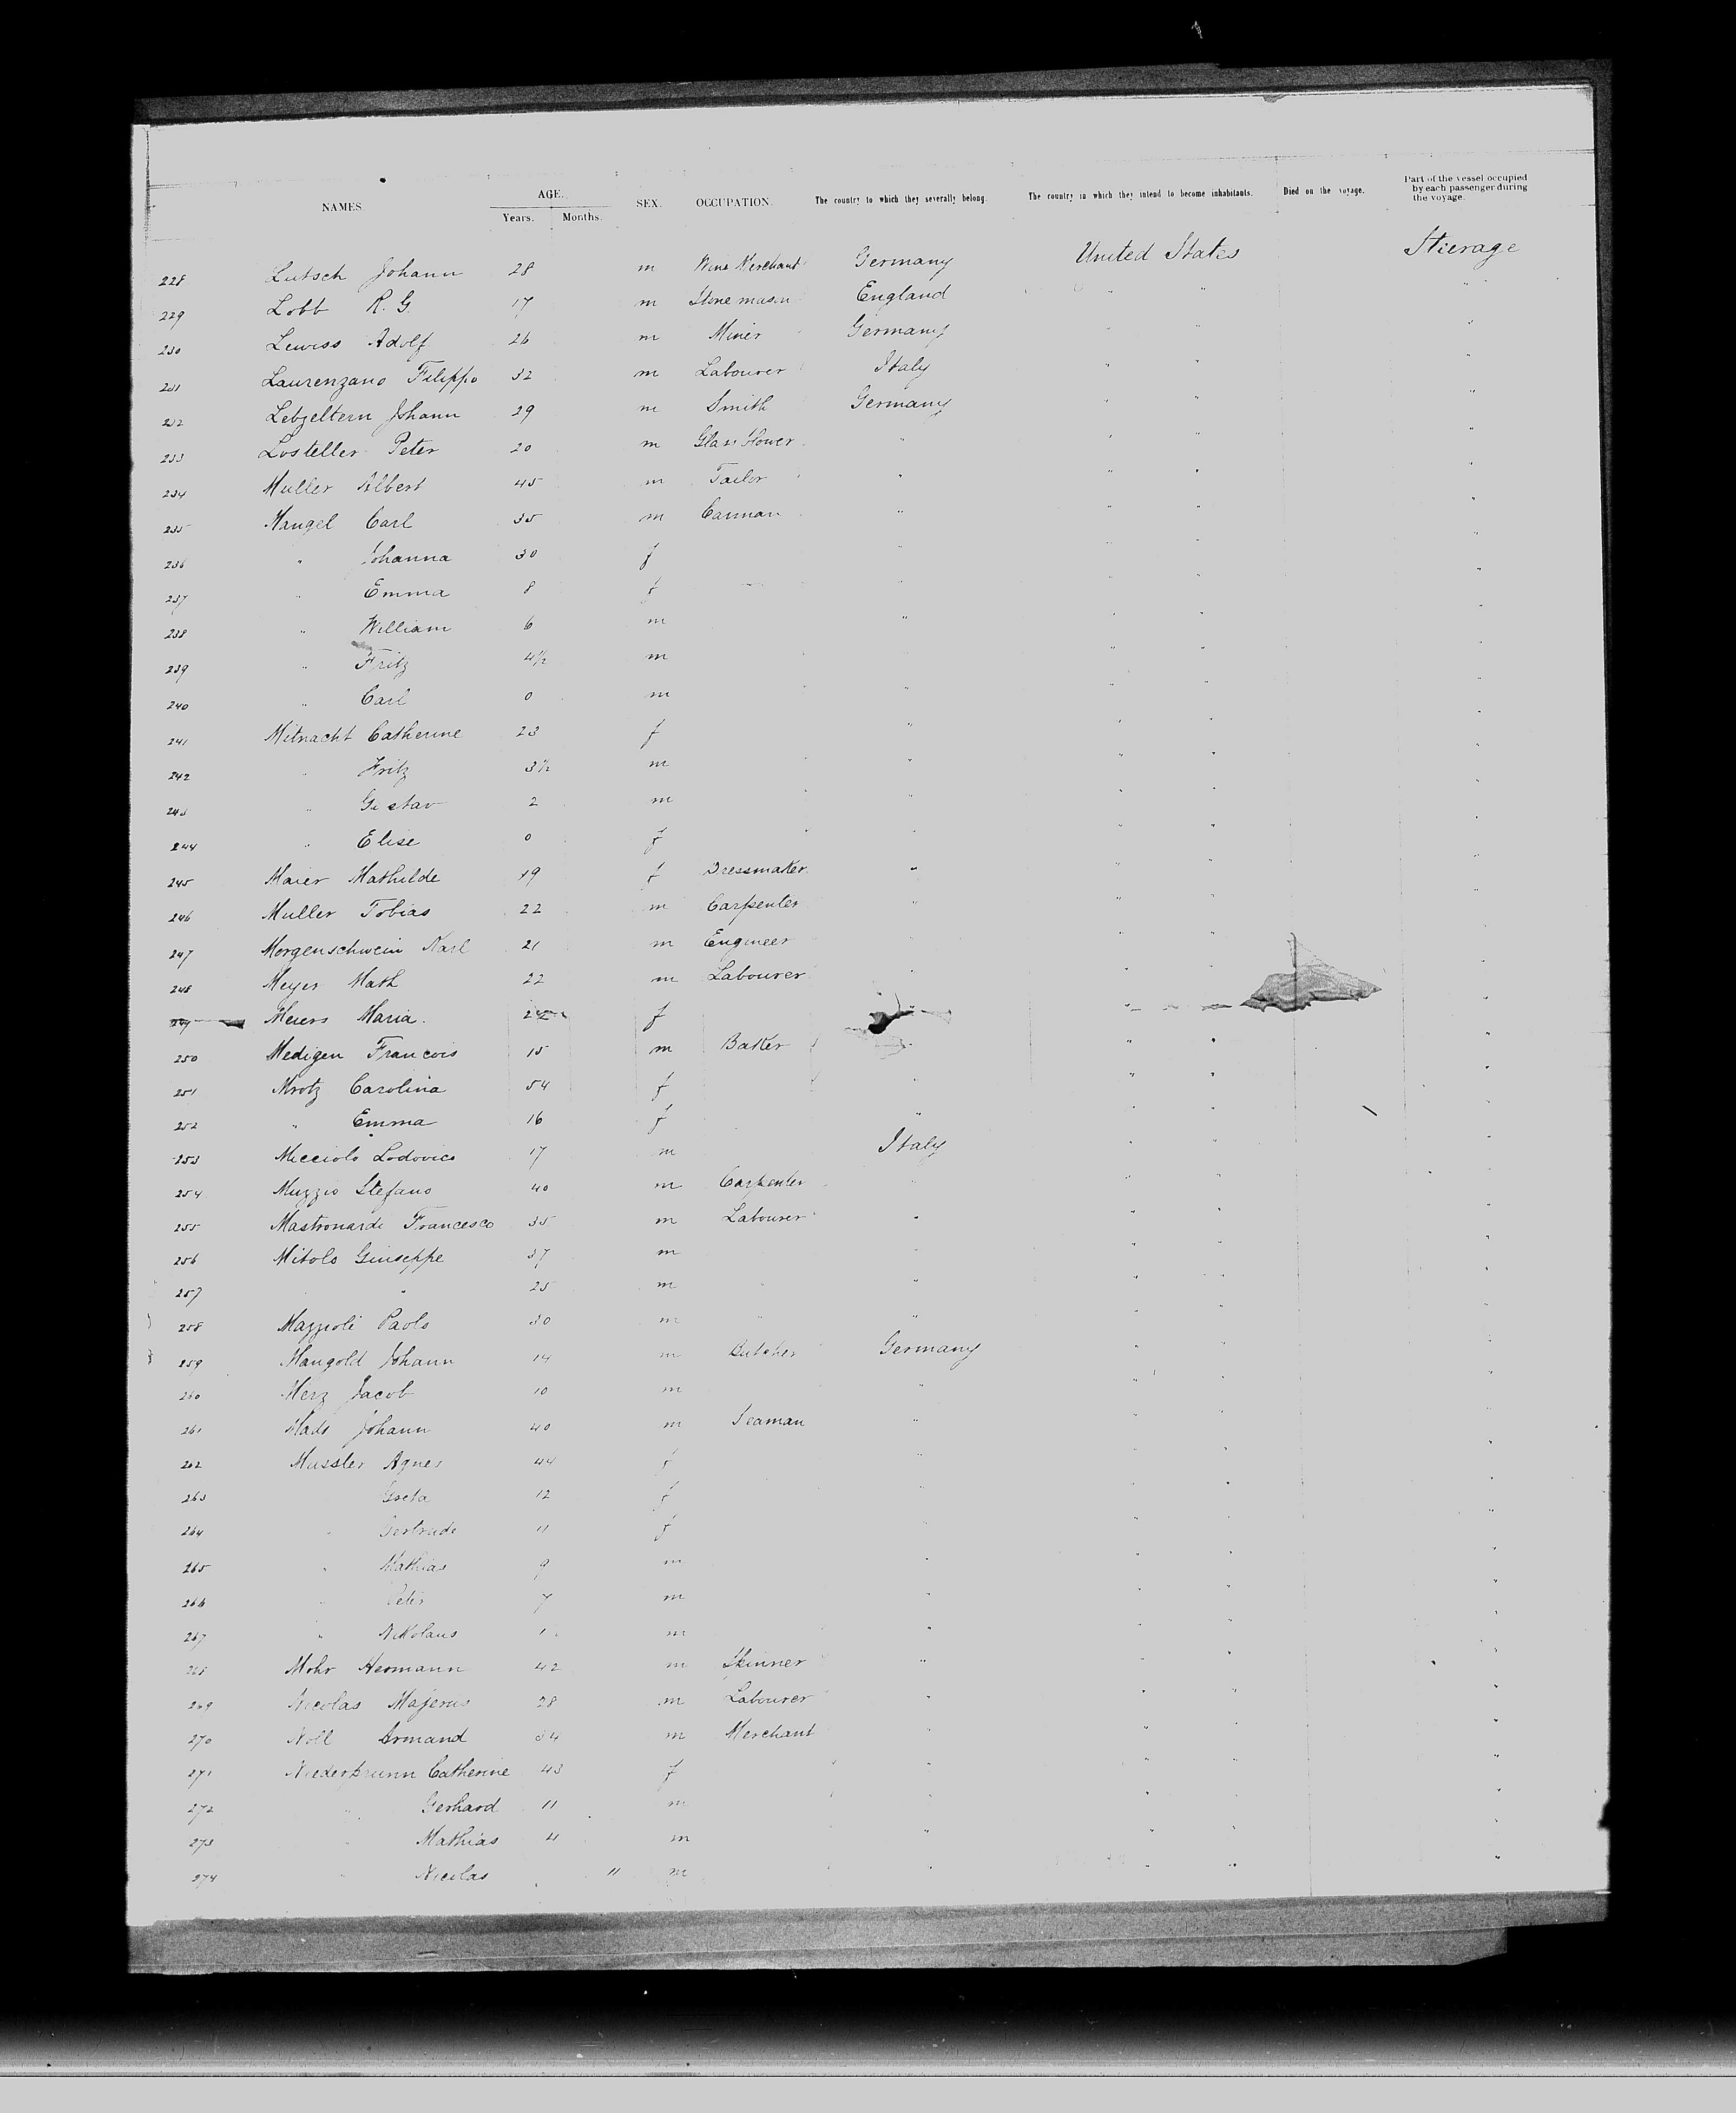 NAMES AGE. Years. Months. SEX. OCCUPATION. The country to which they severally belong. The country in which they intend to become inhabitants. Died on the voyage. Part of the vessel occupied by each passenger during the voyage.
228 Lutsch Johann 28 m Wine Merchant Germany United States Stierage
229 Lobb R. G. 17 m Stone mason England " " "
230 Lewiss Adolf 26 m Miner Germany " " "
231 Laurenzano Filippo 32 m Labourer Italy " " "
232 Lebzeltern Johann 29 m Smith Germany " " "
233 Losteller Peter 20 m Glass blower " " " "
234 Muller Albert 45 m Tailor " " " "
235 Mangel Carl 35 m Carman " " " "
236 " Johanna 30 f " " " "
237 " Emma 8 f " " " "
238 " William 6 m " " " "
239 " Fritz 4½ m " " " "
240 " Carl 0 m " " " "
241 Mitnacht Catherine 23 f " " " "
242 " Fritz 3½ m " " " "
243 " Gustav 2 m " " " "
244 " Elise 0 f " " " "
245 Maier Mathilde 19 f Dressmaker " " " "
246 Muller Tobias 22 m Carpenter " " " "
247 Morgenschwein Karl 21 m Engineer " " " "
248 Meyer Math 22 m Labourer " " " "
249 Meiers Maria. 22 f " " "
250 Medigen Francois 15 m Baker " " " "
251 Mrotz Carolina 54 f " " " "
252 " Emma 16 f " " " "
253 Micciolo Lodovico 17 m Italy " " "
254 Muzzio Stefano 40 m Carpenter " " " "
255 Mastronardi Francesco 35 m Labourer " " " "
256 Mitolo Giuseppe 37 m " " " "
257 " " 25 m " " " " "
258 Mazzioli Paolo 30 m " " " " "
259 Mangold Johann 14 m Butcher Germany " " "
260 Merz Jacob 10 m " " " "
261 Mads Johann 40 m Seaman " " " "
262 Mussler Agnes 44 f " " " "
263 12 f " " "
264 " Gertrude 11 f " " " "
265 " Mathias 9 m " " " "
266 " Peter 7 m " " " "
267 " Nikolaus 1 m " " " "
268 Mohr Hermann 42 m Skinner " " " "
269 Nicolas Majerus 28 m Labourer " " " "
270 Noll Armand 34 m Merchant " " " "
271 Niederprunn Catherine 43 f " " " "
272 " Gerhard 11 m " " " "
273 " Mathias 4 m " " " "
274 " Nicolas 11 m " " " "